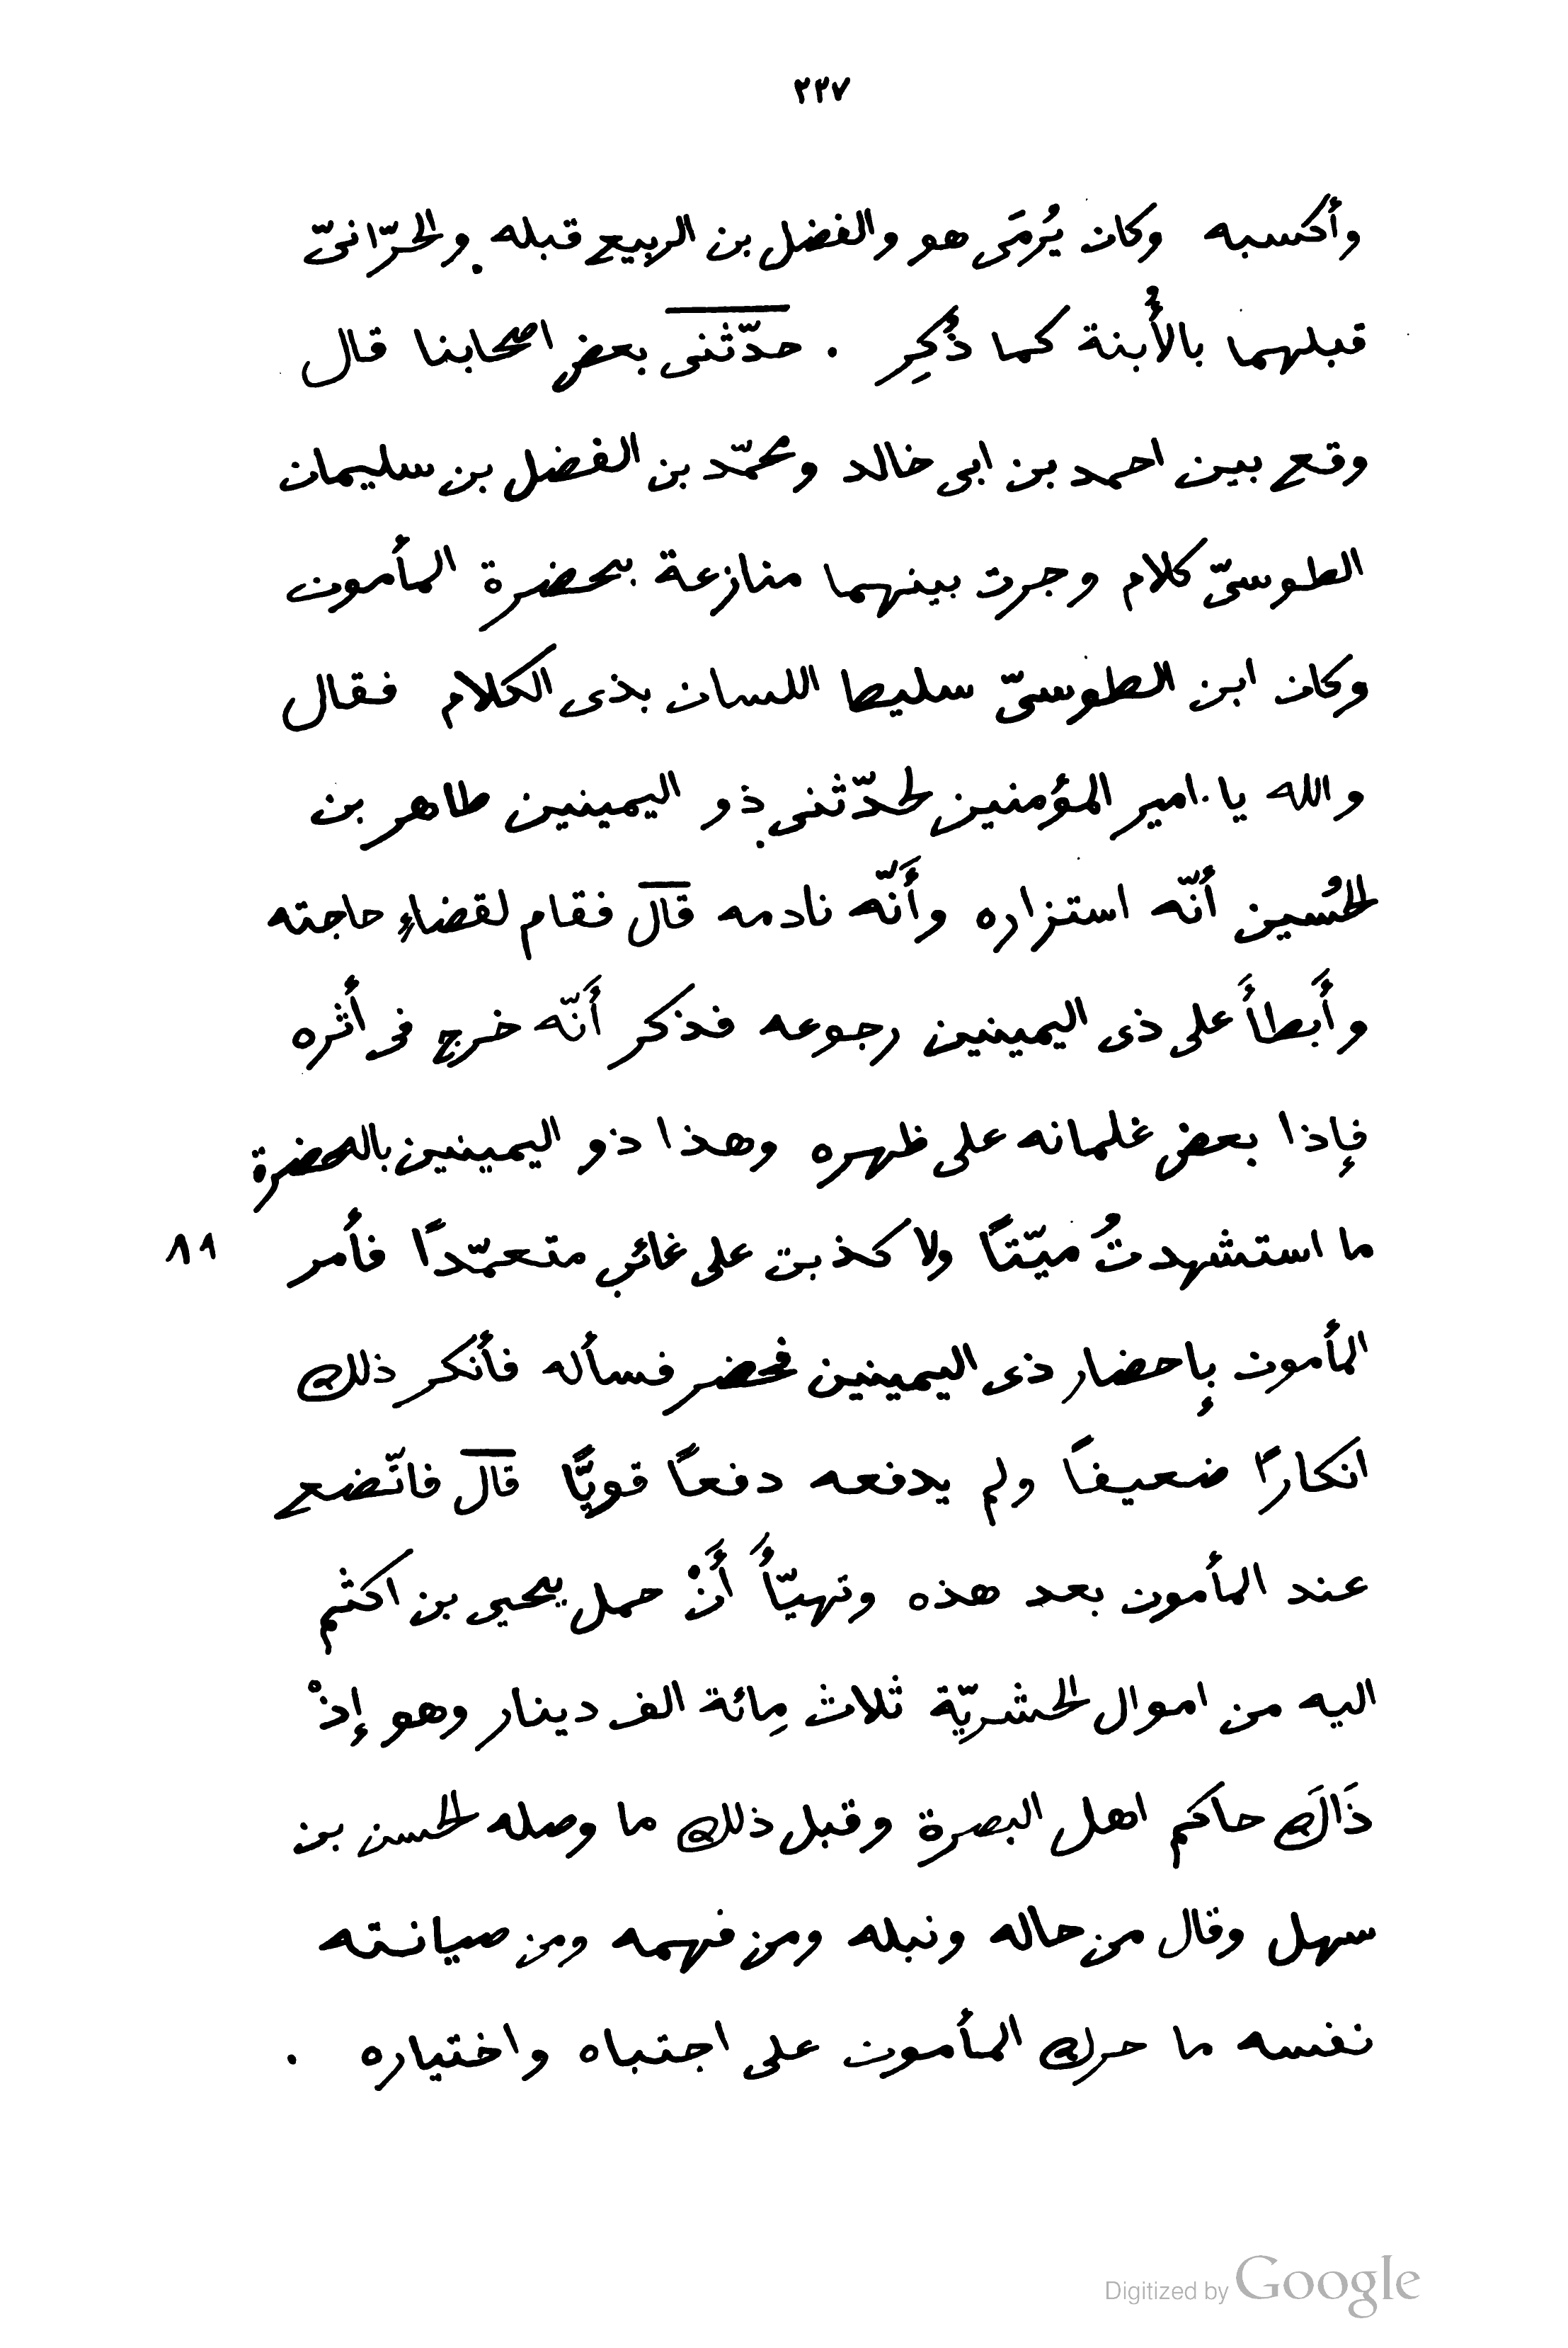 ٢٢٧
وأكسبه وكان يُرمَى هو والفضل بن الربيع قبله والحرّانىّ
قبلهما بالأُبنة كما ذُكِر . حدّثنى بعض اصحابنا قال
وقع بين احمد بن ابى خالد ومحمّد بن الفضل بن سليمان
الطوسىّ كلام وجرت بينهما منازعة بحضرة المأمون
وكان ابن الطوسىّ سليطا اللسان بذى الكلام فقال
والله يا امير المؤمنين لحدّثنى ذو اليمينين طاهر بن
الحُسين أنّه استزاره وأَنّه نادمه قال فقام لقضاءِ حاجته
وأَبطأَ على ذى اليمينين رجوعه فذكر أَنّه خرج فى أثره
فإذا بعض غلمانه على ظهره وهذا ذو اليمينين بالحضرة
ما استشهدتُ ميّتًا ولا كذبت على غائبٍ متعمّدًا فأمر
٨١
المأمون بإحضار ذى اليمينين فحضر فسأله فأنكر ذلك
انكارًا ضعيفًا ولم يدفعه دفعًا قويًّا قال فاتّضع
عند المأمون بعد هذه وتهيّأَ أَنْ حمل يحيى بن اكثم
اليه من اموال الحشريّة ثلاث مِائة الف دينار وهو إذْ
ذَاكَ حاكم اهل البصرة وقبل ذلك ما وصله الحسن بن
سهل وقال من حاله ونبله ومن فهمه ومن صيانته
نفسه ما حرك المأمون على اجتباه واختياره .
Digitized by Google